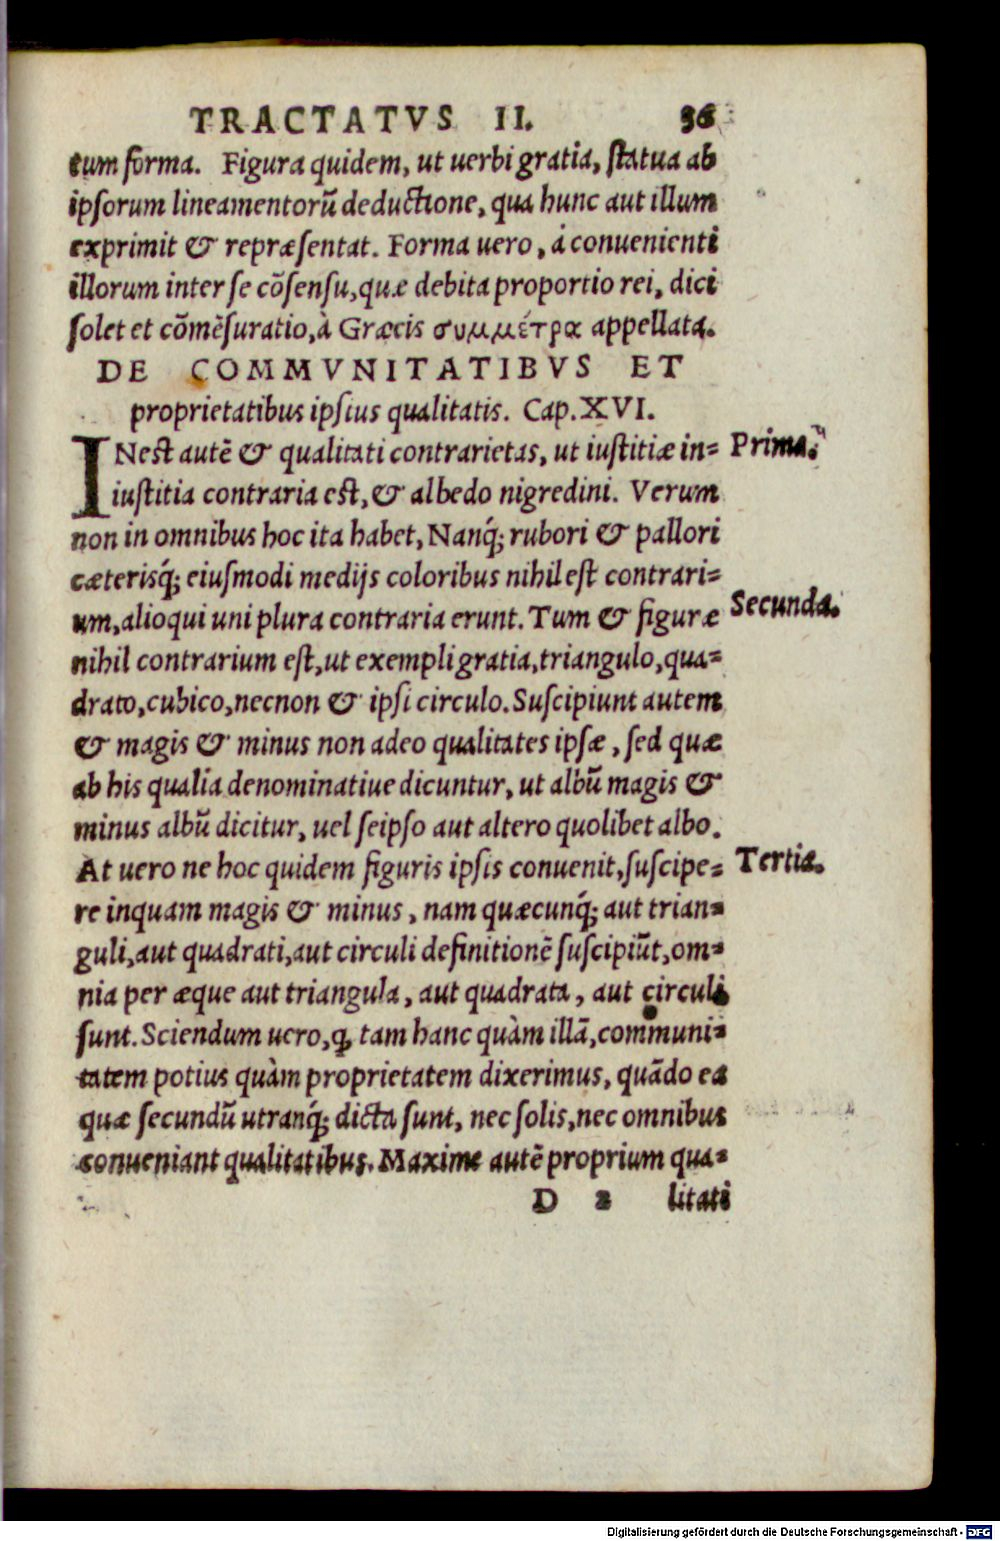 TRACTATVS II. 36
tum forma. Figura quidem, ut uerbi gratia, statua ab
ipsorum lineamentorũ deductione, qua hunc aut illum
exprimit & repræsentat. Forma uero, á conuenienti
illorum inter se cõsensu, quæ debita proportio rei, dici
solet et cõmẽsuratio, à Græcis συμμέτρα appellata.
DE COMMVNITATIBVS ET
proprietatibus ipsius qualitatis. Cap. XVI.
INest autẽ & qualitati contrarietas, ut iustitiæ in= Prima.
iustitia contraria est, & albedo nigredini. Verum
non in omnibus hoc ita habet, Nanq́; rubori & pallori
cæterisq́; eiusmodi medijs coloribus nihil est contrari=
um, alioqui uni plura contraria erunt. Tum & figuræ Secunda.
nihil contrarium est, ut exempli gratia, triangulo, qua=
drato, cubico, necnon & ipsi circulo. Suscipiunt autem
& magis & minus non adeo qualitates ipsæ, sed quæ
ab his qualia denominatiue dicuntur, ut albũ magis &
minus albũ dicitur, uel seipso aut altero quolibet albo.
At uero ne hoc quidem figuris ipsis conuenit, suscipe= Tertia.
re inquam magis & minus, nam quæcunq́; aut trian=
guli, aut quadrati, aut circuli definitionẽ suscipiũt, om=
nia per æque aut triangula, aut quadrata, aut circuli
sunt. Sciendum uero, ꝙ tam hanc quàm illã, communi=
tatem potius quàm proprietatem dixerimus, quãdo ea
quæ secundũ utranq́; dicta sunt, nec solis, nec omnibus
conueniant qualitatibus. Maxime autẽ proprium qua=
D 2 litati
Digitalisierung gefördert durch die Deutsche Forschungsgemeinschaft - DFG